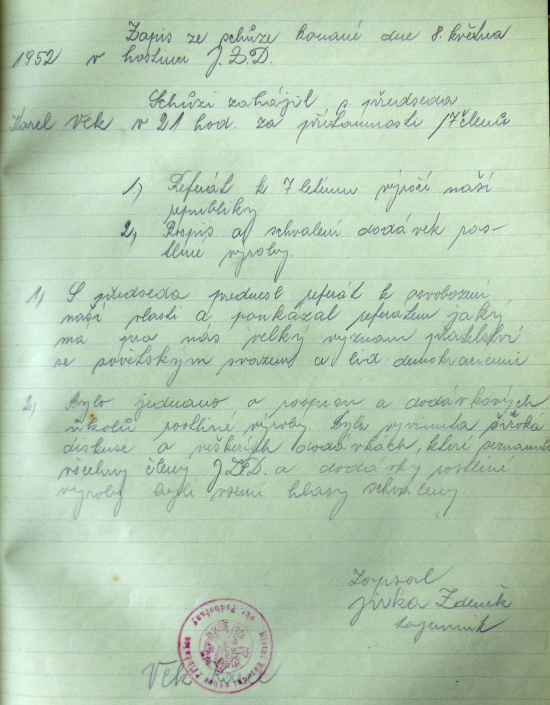 Zapis ze schůze konané dne 8. května
1952 v hostinci J.Z.D.
Schůzi zahájil s. předseda
Karel Vek v 21 hod. za přítomnosti 17 členů
1, Referát k 7 letému výročí naší
republiky
2, Rospis a schvalení dodávek ros-
tliné výroby.
1, S předseda prednesl referát k osvobození
naší vlasti a poukázal referátem jaký
ma pro nás velký vyznam přatelství
se sovětským svazem a lid. demokraciemi
2, Bylo jednano o rospisu a dodávkových
úkolů rostliné výroby. Byla vyvinuta široká
diskuse o veškerých dodávkách, které seznamili
všechny členy J.Z.D. a dodávky rostliné
výroby byli všemi hlasy schvaleny.
Zapsal
Jivka Zdeněk
tajemník
Místní národní výbor
okr. Podbořany
Vek Karel